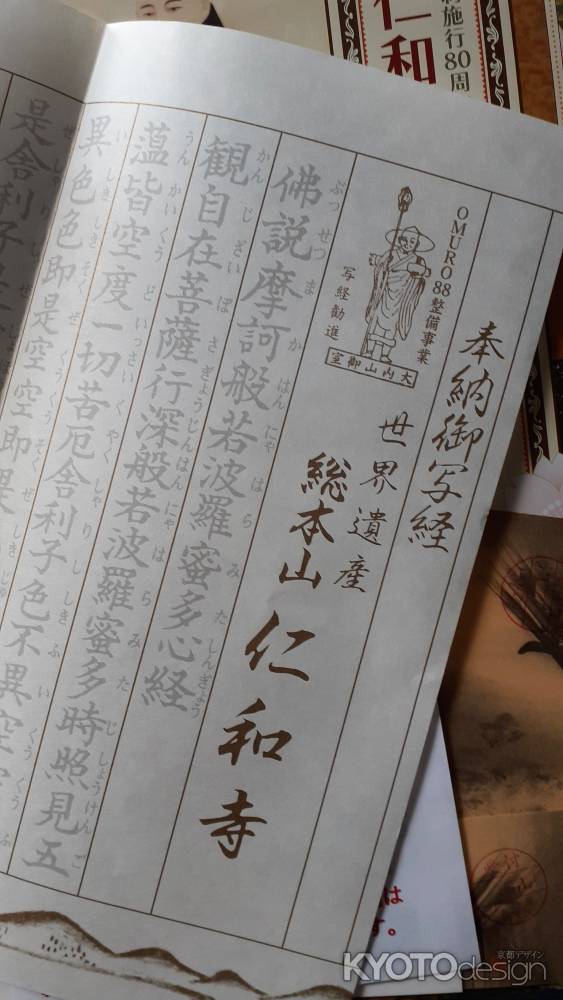 奉納御写経
OMURO88整備事業
写経勧進
大内山御室
世界遺産
総本山
仁和寺
佛説摩訶般若波羅蜜多心経
ぶっせつまかはんにゃはらみたしんぎょう
観自在菩薩行深般若波羅蜜多時照見五
かんじざいぼさぎょうじんはんにゃはらみたじしょうけんご
蘊皆空度一切苦厄舎利子色不異空空
うんかいくうどいっさいくやくしゃりししきふいくうくうふ
異色色即是空空即是
いしきしきそくぜくうくうそくぜしき
是舎利子
ぜしゃりし
仁和
施行80周
は
す。
京都デザイン
KYOTOdesign